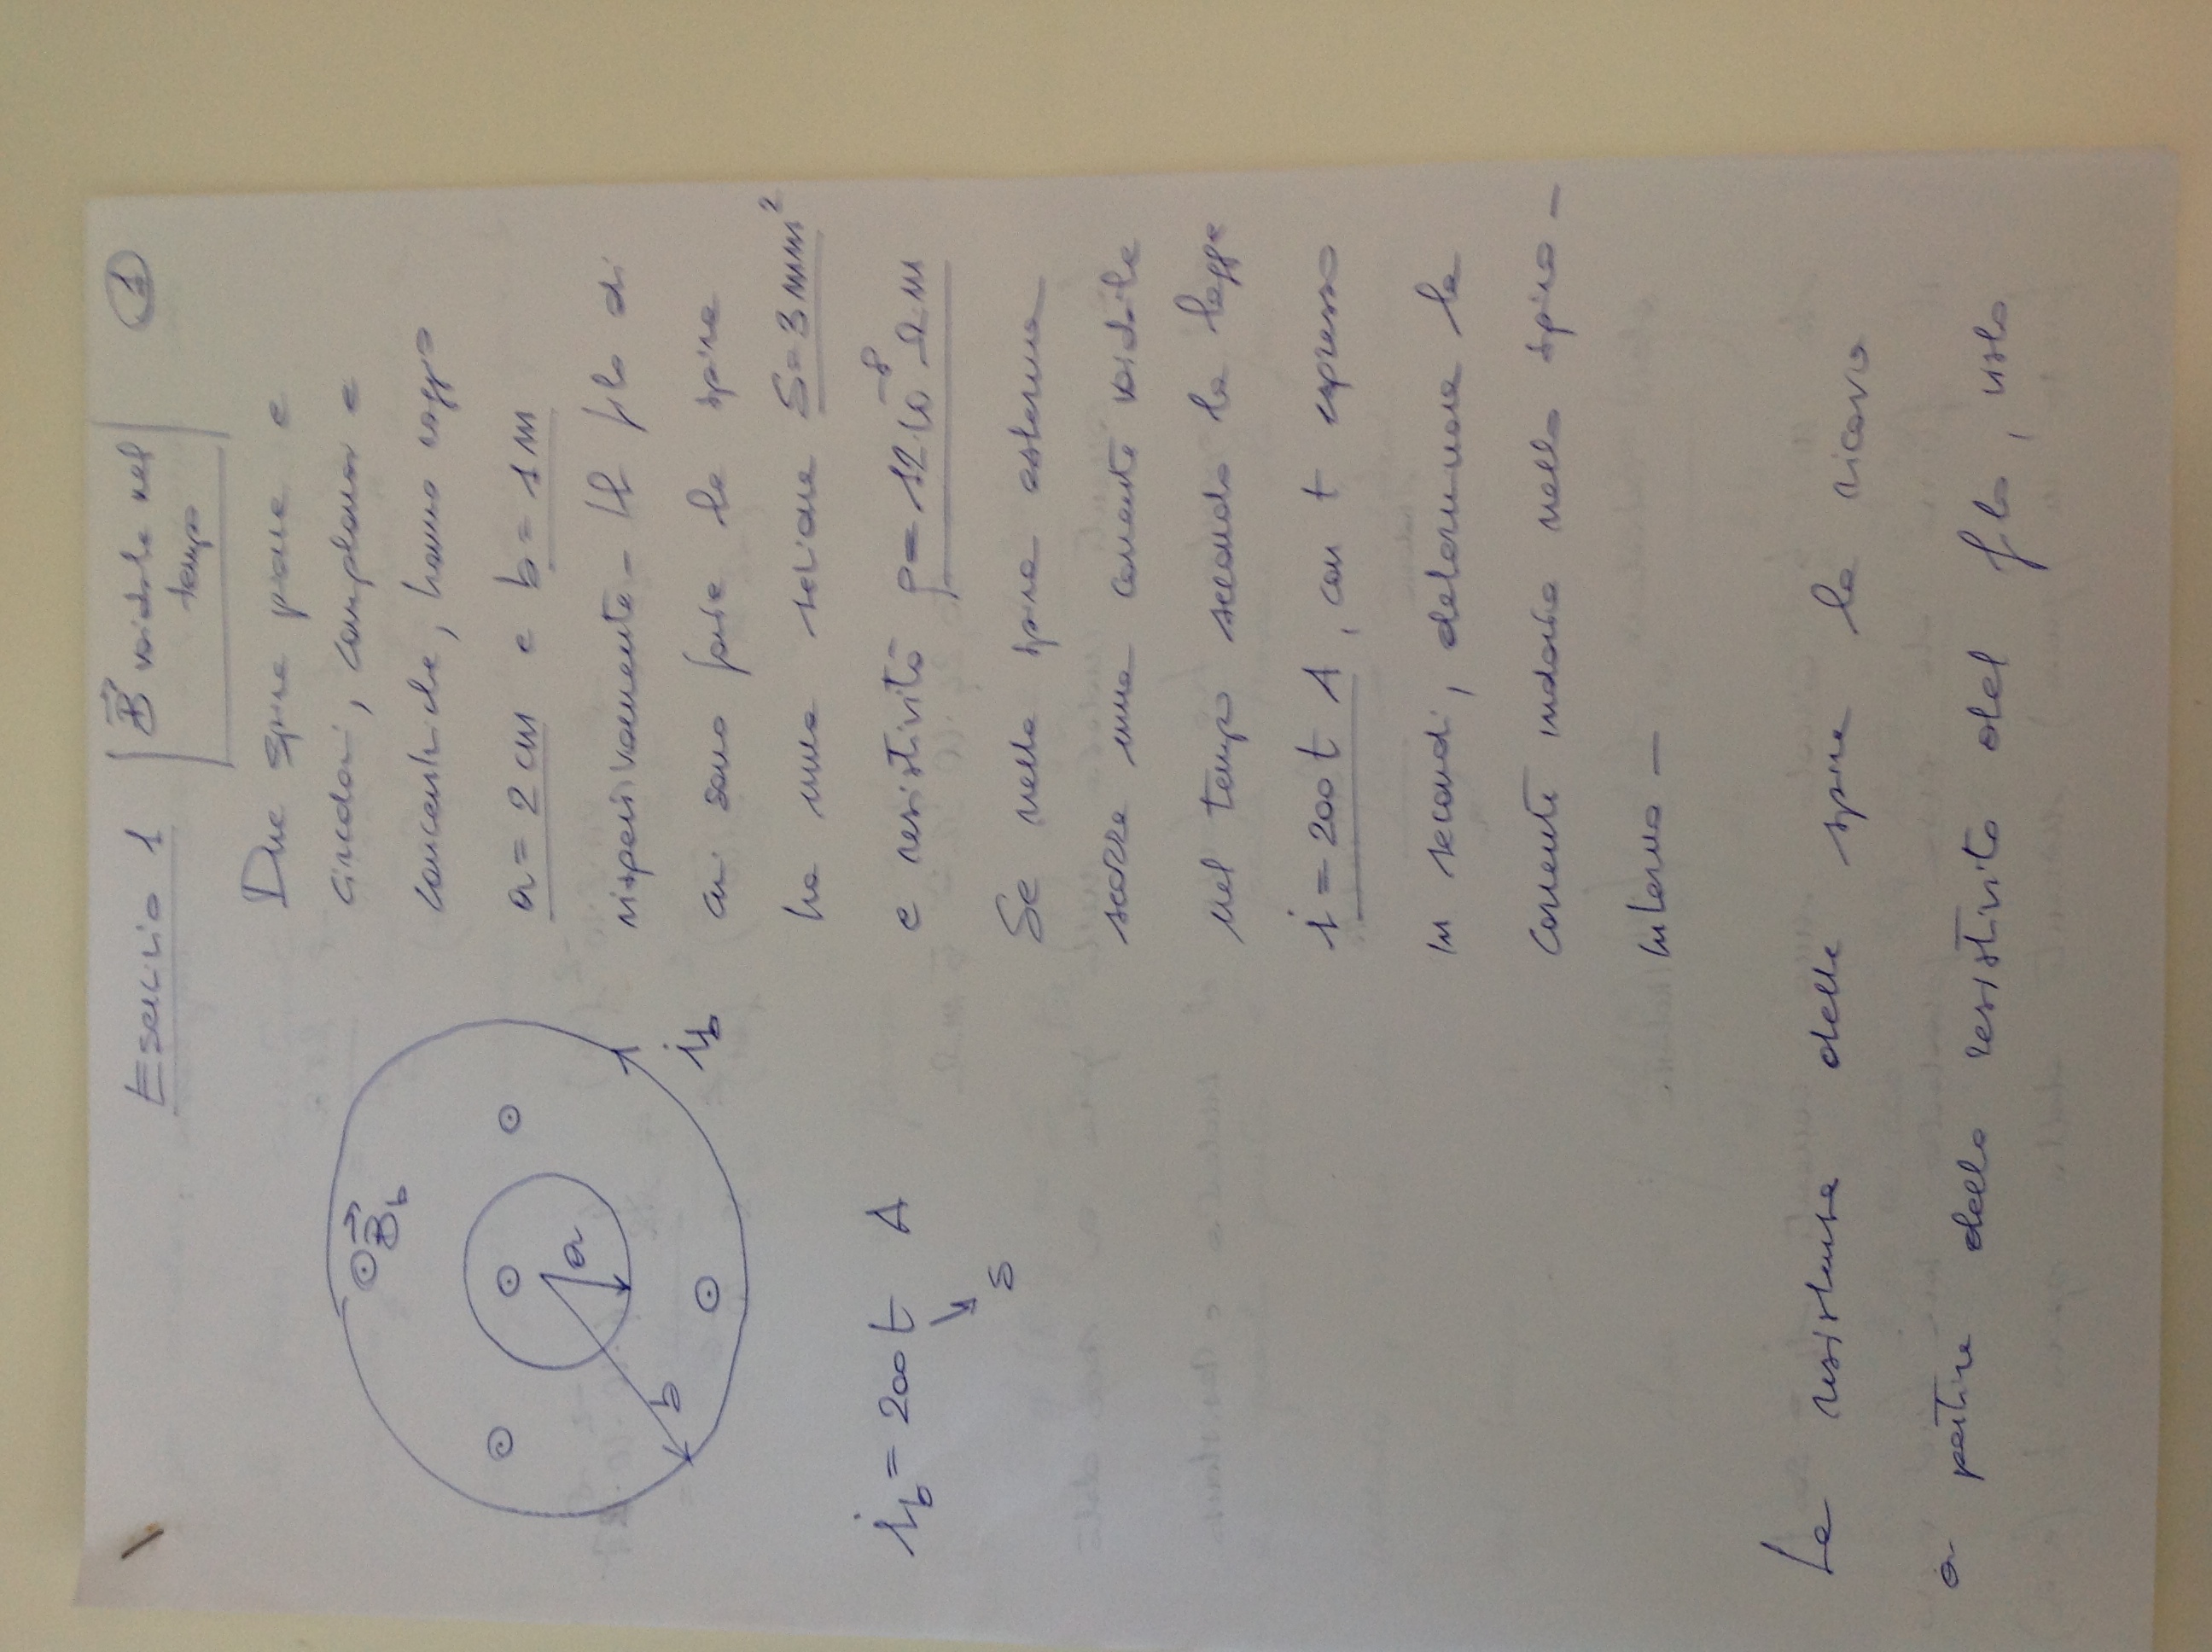 Esercizio 1
B⃗ variabile nel
tempo
1
Due spire piane e
circolari, complanari e
concentriche, hanno raggio
a = 2 cm e b = 1 m
rispettivamente - Il filo di
cui sono fatte le spire
ha una sezione S = 3 mm²
e resistività ρ = 12·10⁻⁸ Ω·m
Se nella spira esterna
scorre una corrente variabile
nel tempo secondo la legge
i = 200 t A, con t espresso
in secondi, determinare la
corrente indotta nella spira -
interna -
B⃗b
a
b
ib
ib = 200 t A
s
La resistenza delle spire la ricavo
a partire dalla resistività del filo, nota